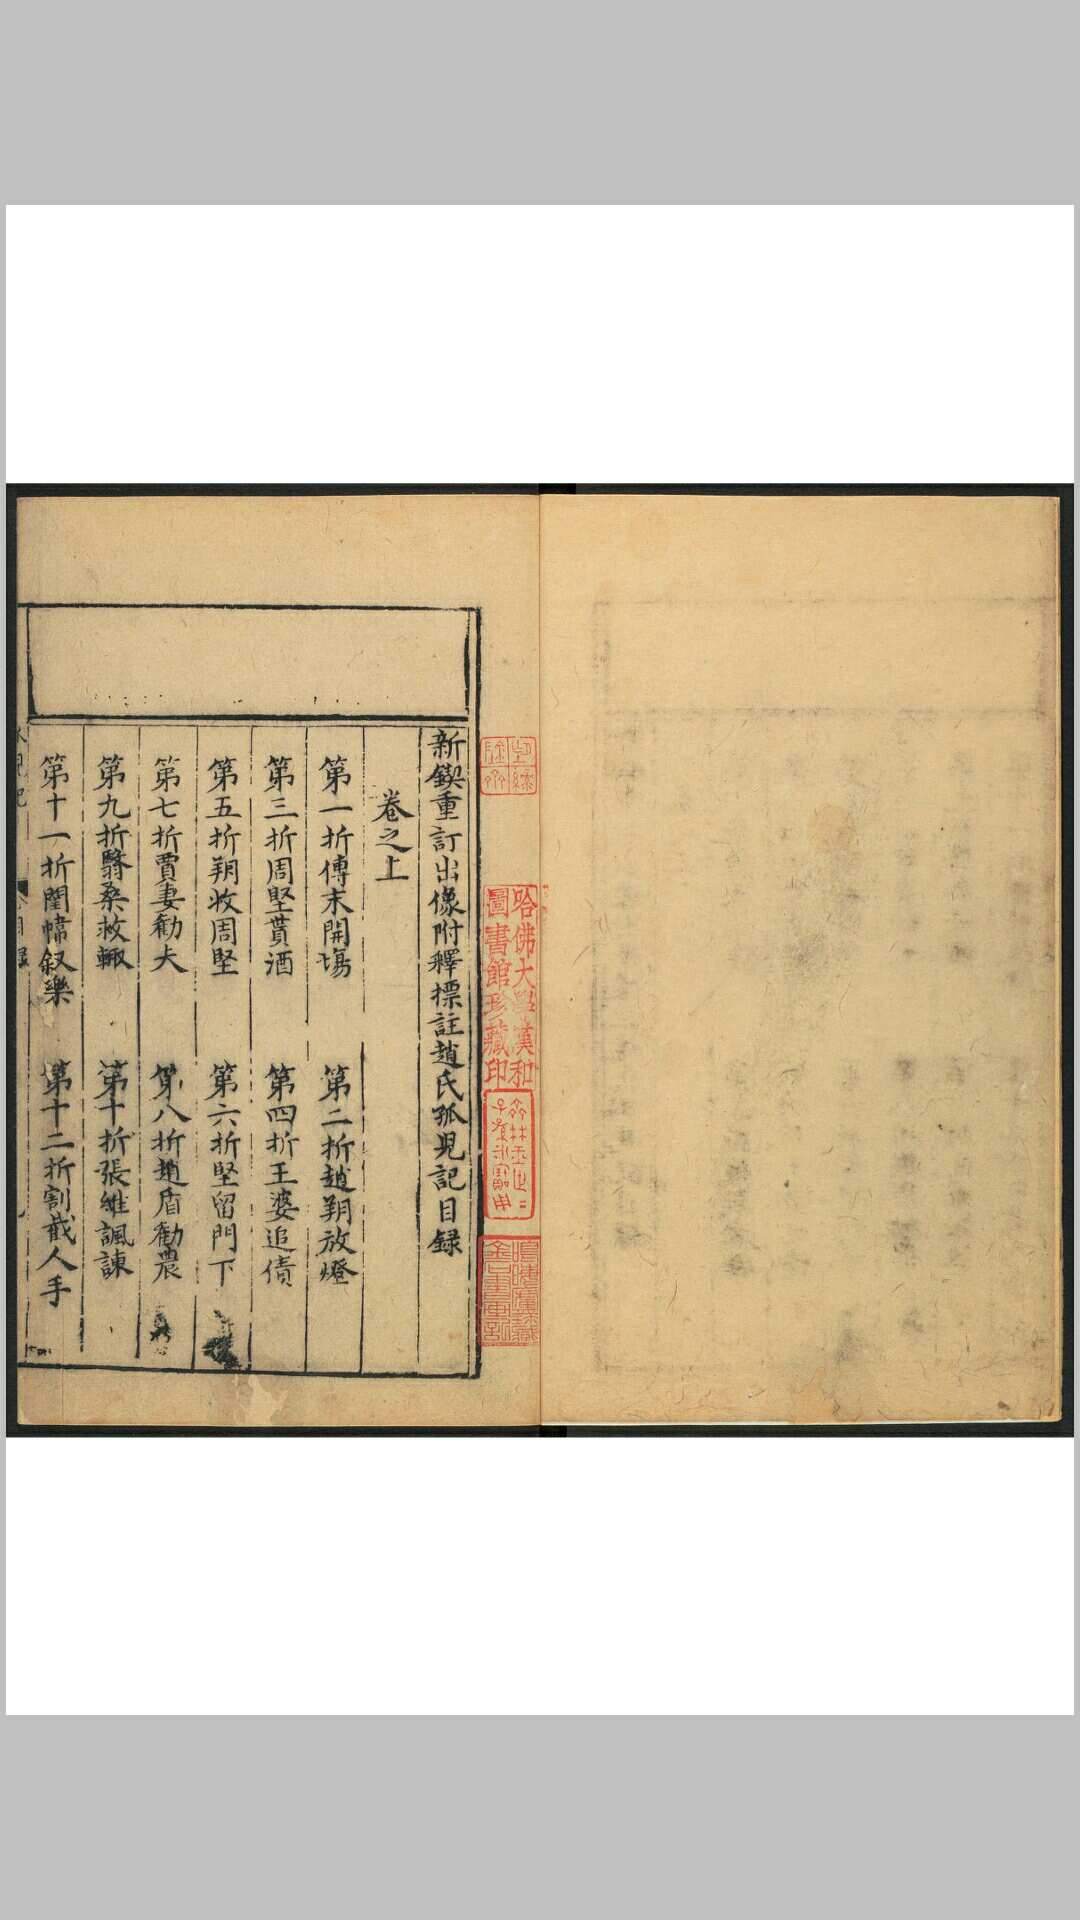 新鍥重訂出像附釋標註趙氏孤児記目録
卷之上
第一折傳末開塲 第二折趙朔放燈
第三折周堅貰酒 第四折王婆追債
第五折朔收周堅 第六折堅留門下
第七折賈妻勸夫 第八折趙盾勸農
第九折翳桑救輙 第十折張維諷諫
第十一折閨幃叙樂 第十二折割截人手
哈佛大學漢和
圖書館珍藏印